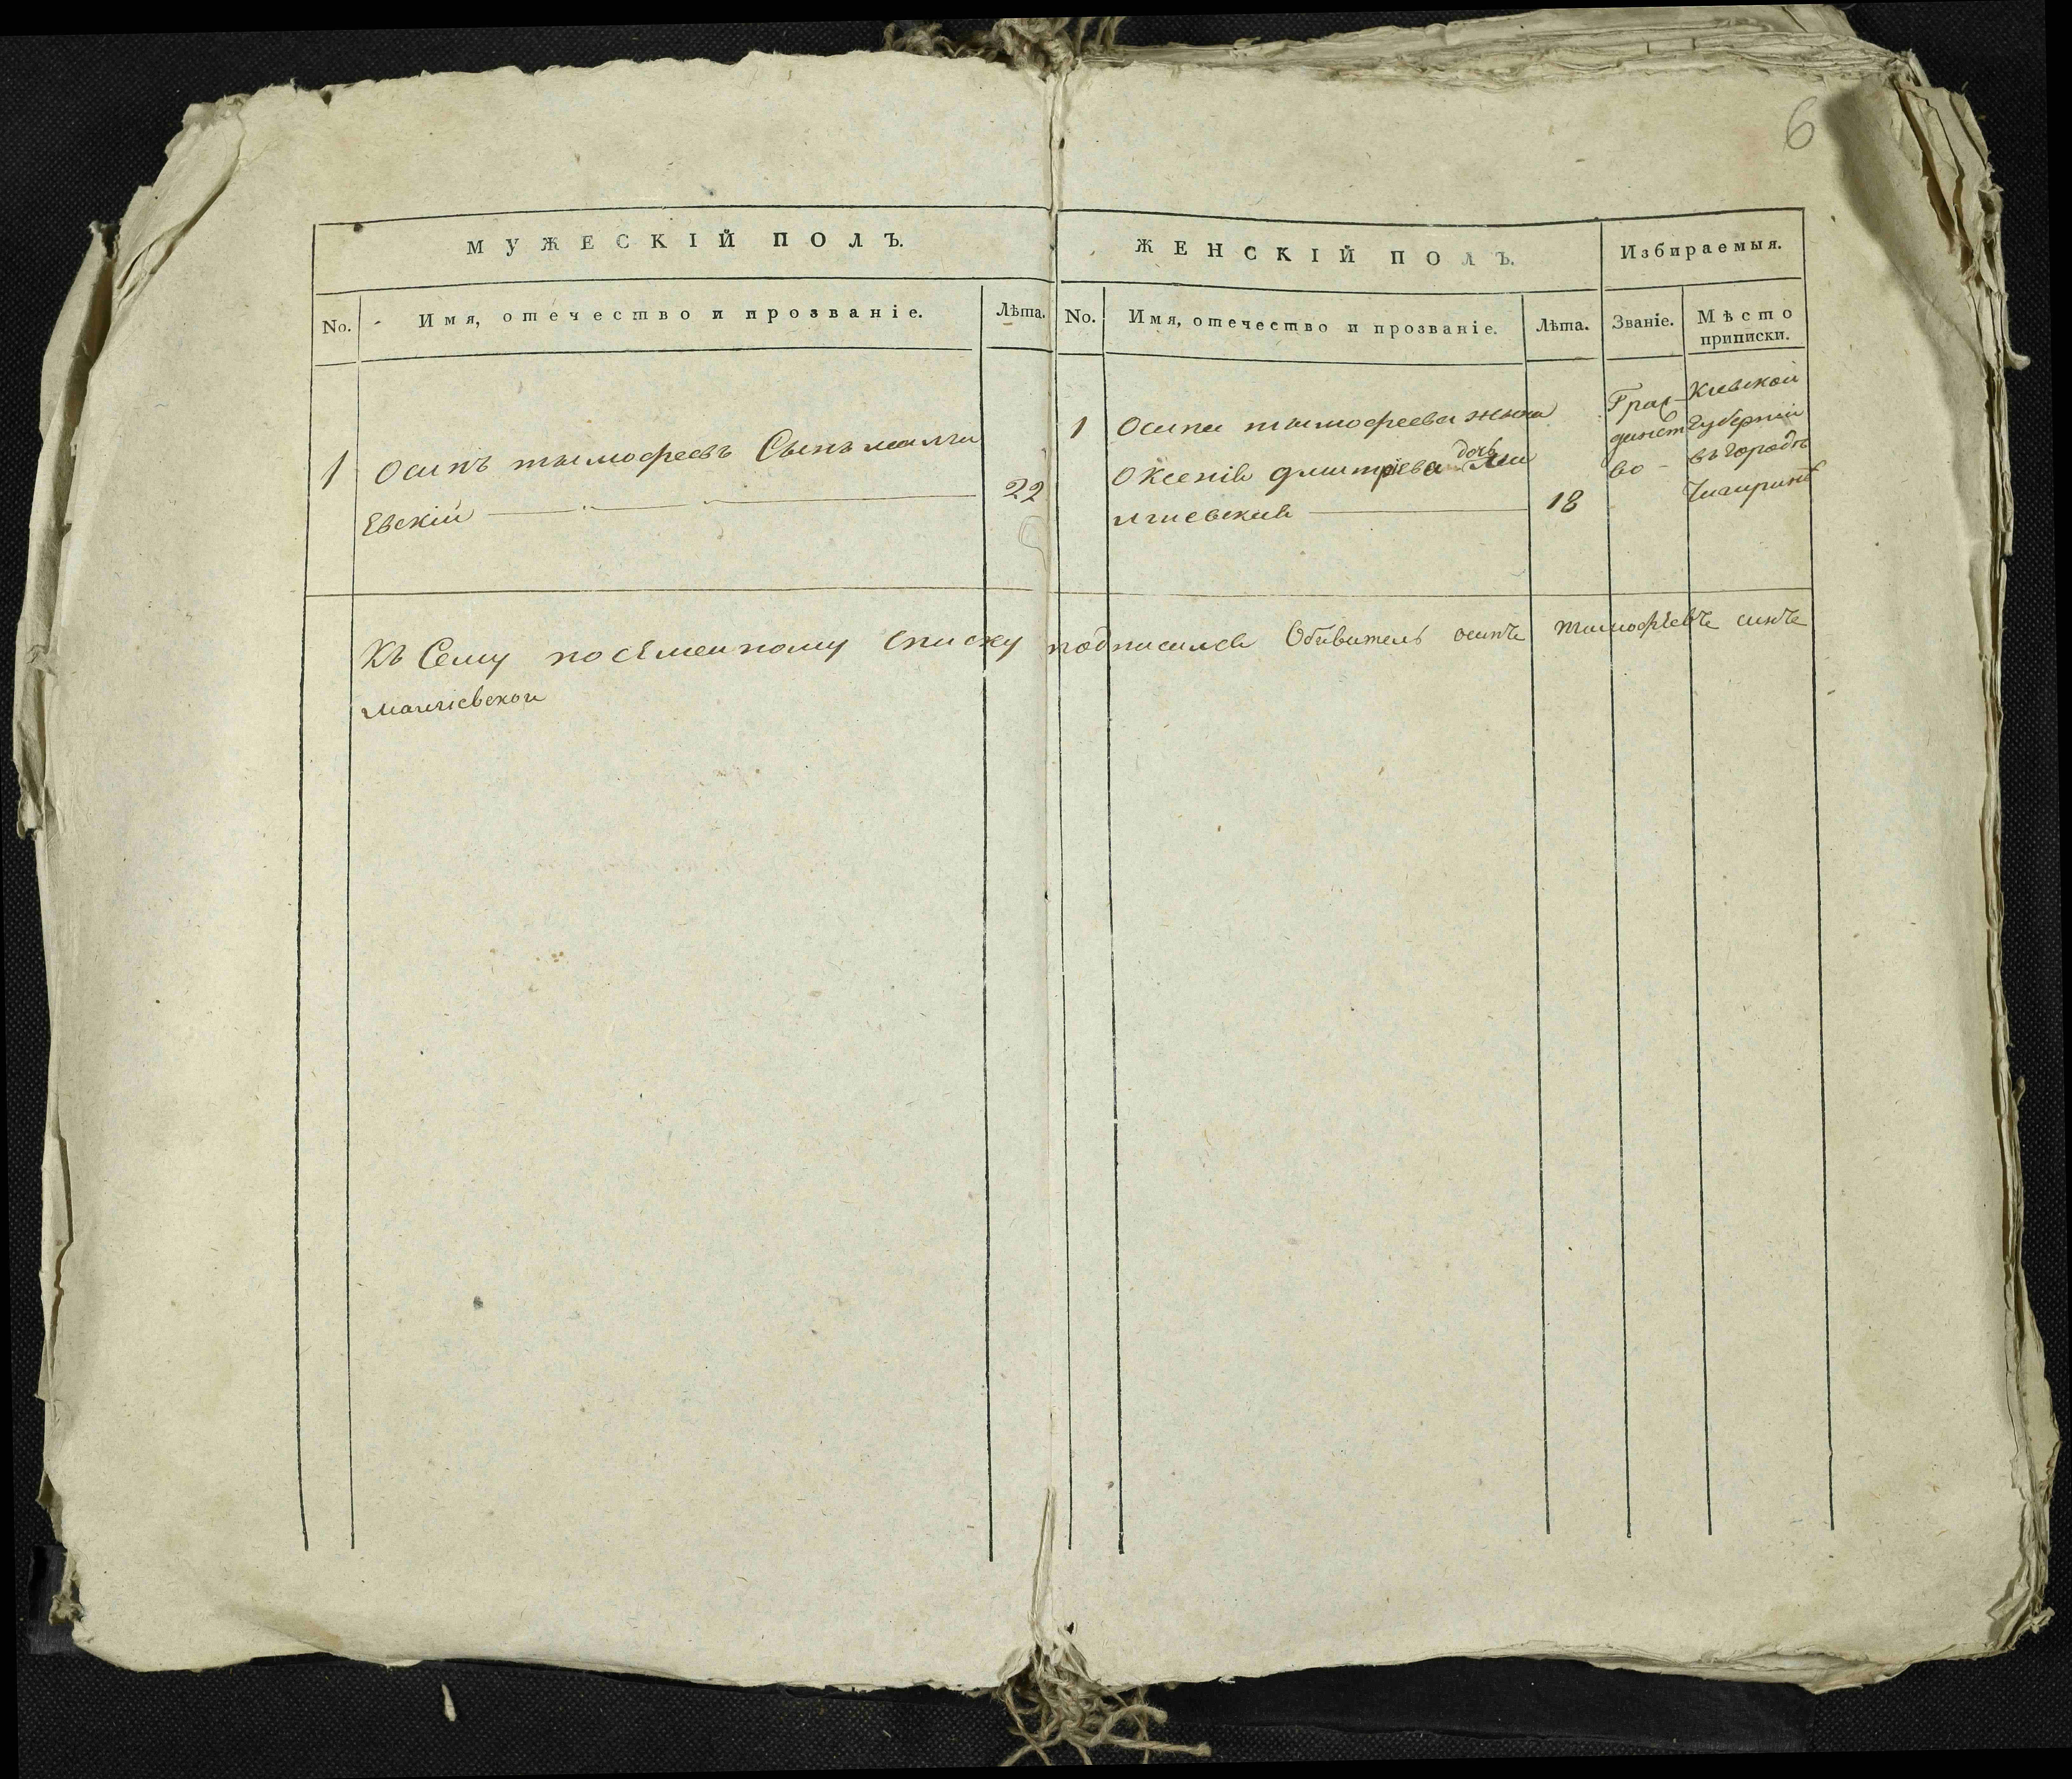 6
МУЖЕСКІЙ ПОЛЪ.
No.
Имя, отечество и прозваніе.
Лѣта.
1
Осипъ тымофеевъ Сынъ малчи
Евскій
22
ЖЕНСКІЙ ПОЛЪ.
No.
Имя, отечество и прозваніе.
Лѣта.
1
Осипа тымофеева жына
Оксенія дмитріева дочь
18
Избираемыя.
Званіе.
Мѣсто
приписки.
Граж
данст
во
Киевской
Губерніи
въ городѣ
Чигиринѣ
Къ Сему посЕмейному списку подписался Обивитель осипъ тимофѣевъ синъ